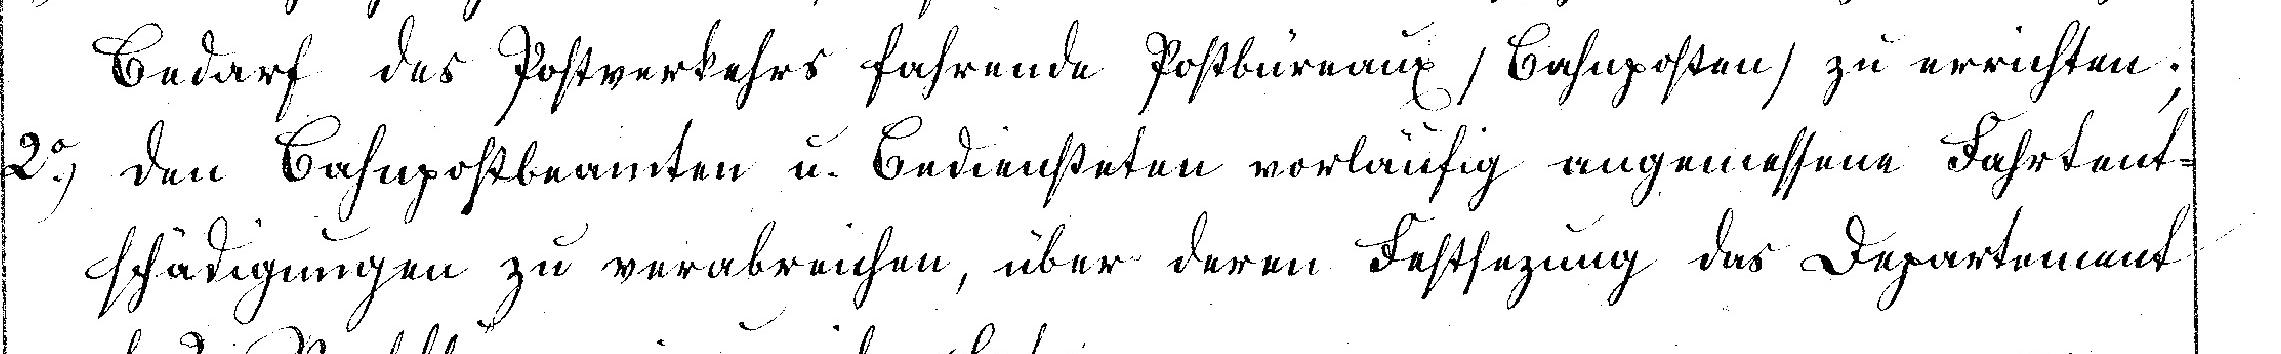 Bedarf des Postverkehrs fahrende Postbüreaux / Bahnposten / zu errichten;
2º) den Bahnpostbeamten u. Bediensteten vorläufig angemessene Fahrtent-
schädigungen zu verabreichen, über deren Festsezung das Departement